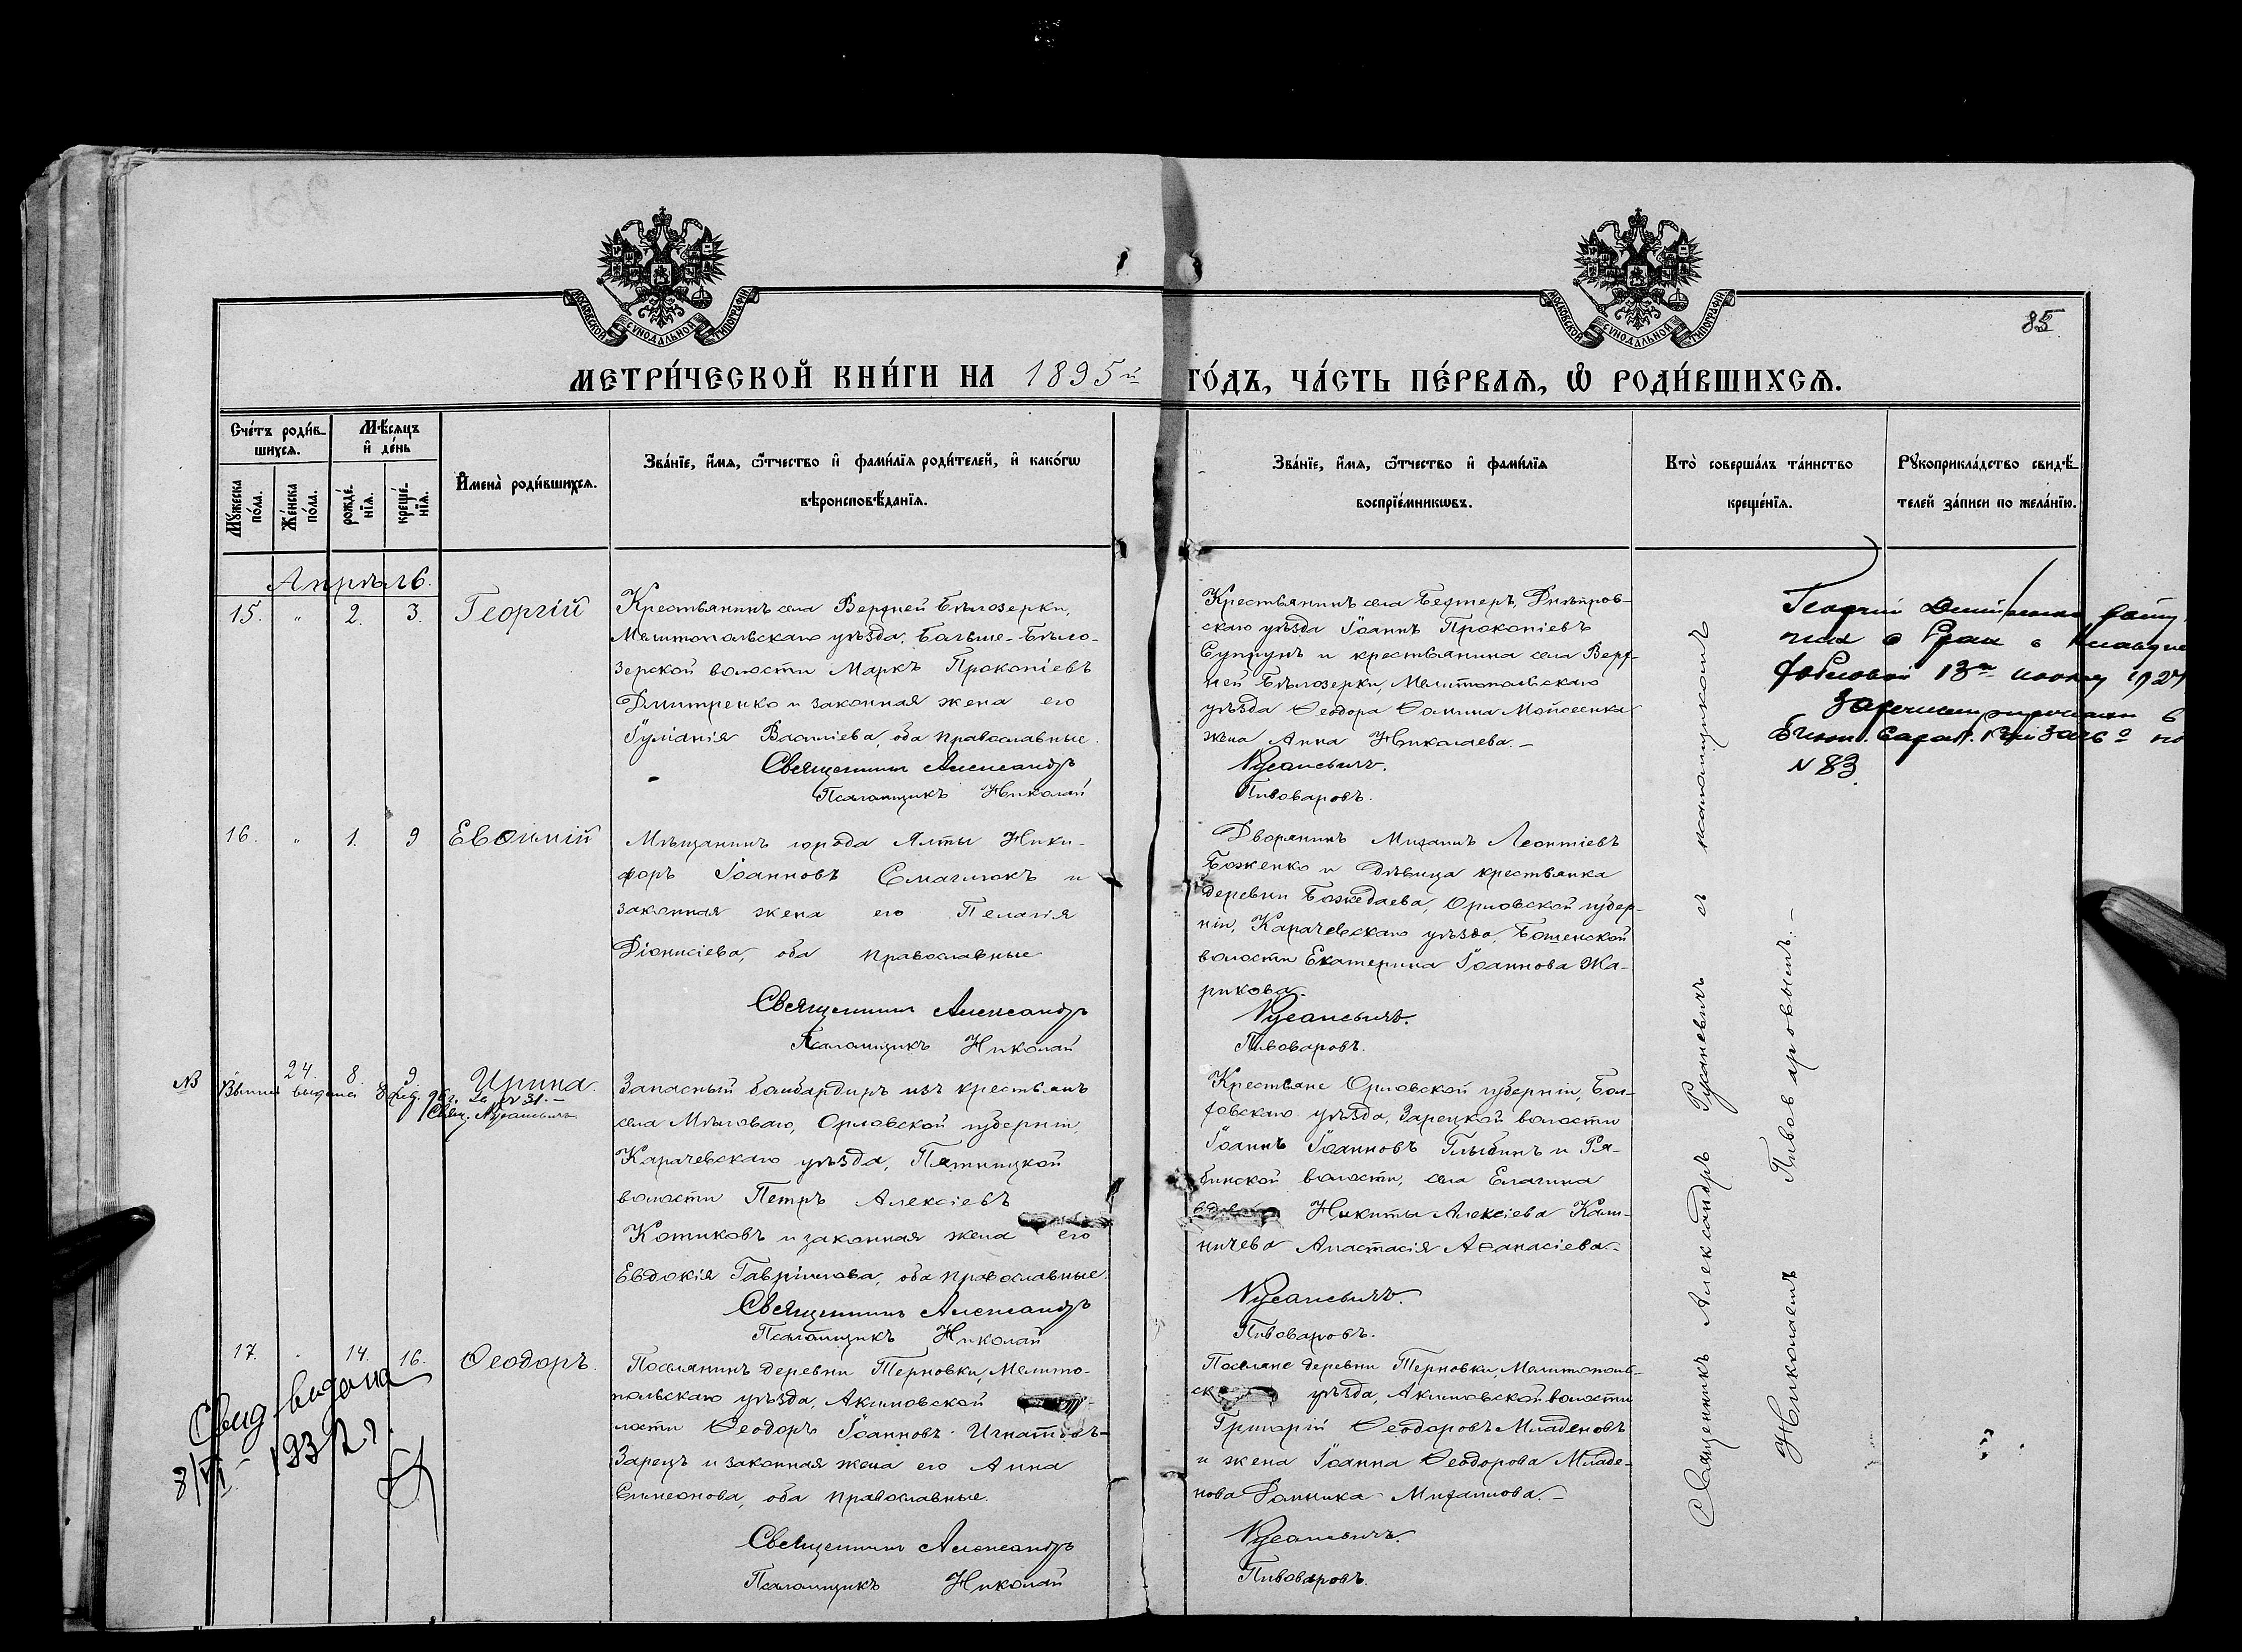 МОСКОВСКОЙ СѴНОДАЛЬНОЙ ТИПОГРАФІИ
МОСКОВСКОЙ СѴНОДАЛЬНОЙ ТИПОГРАФІИ
85
МЕТРИ́ЧЕСКОЙ КНИ́ГИ НА 1895й ГО́ДЪ, ЧА́СТЬ ПЕ́РВАѦ, Ѡ҆ РОДИ́ВШИХСѦ.
Сче́тъ роди́в-
шихсѧ.
Мꙋ́жеска по́ла.
Же́нска по́ла.
Мѣ́сѧцъ
и҆ де́нь
рожде́-
нїѧ.
креще́-
нїѧ.
И҆мена̀ роди́вшихсѧ.
Зва́нїе, и҆́мѧ, ѻ҆́тчество и҆ фами́лїѧ роди́телей, и҆ како́гѡ
вѣроисповѣ́данїѧ.
Зва́нїе, и҆́мѧ, ѻ҆́тчество и҆ фами́лїѧ
воспрїе́мникѡвъ.
Кто̀ соверша́лъ та́инство
креще́нїѧ.
Рꙋкоприкла́дство свидѣ́-
телей за́писи по жела́нїю.
Апрѣль.
15. " 2. 3. Георгій
Крестьянинъ села Верхней Бѣлозерки,
Мелитопольскаго уѣзда, Больше-Бѣло-
зерской волости Маркъ Прокопіевъ
Дмитренко и законная жена его
Іуліанія Василіева, оба православные.
Священникъ Александръ
Псаломщикъ Николай
Крестьянинъ села Бехтеръ, Днѣпров-
скаго уѣзда Іоаннъ Прокопіевъ
Супрунъ и крестьянина села Верх-
ней Бѣлозерки, Мелитопольскаго
уѣзда Ѳеодора Ѳомина Мойсеенка
жена Анна Николаева.-
Русаневичъ.
Пивоваровъ.
13го 1927
N 83
16. " 1. 9 Евѳимій
Мѣщанинъ города Ялты Ники-
форъ Іоанновъ Смаглюкъ и
законная жена его Пелагія
Діонисіева, оба православные
Священникъ Александръ
Псаломщикъ Николай
Дворянинъ Михаилъ Леонтіевъ
Боженко и дѣвица крестьянка
деревни Бождаева, Орловской губер-
ніи, Карачевскаго уѣзда, Бошенской
волости Екатерина Іоаннова Жа-
рикова.
Русаневичъ.
Пивоваровъ.
№ 24. 8 9 Ирина.
выдана 8 96 г. за № 31.-
Свящ. Русаневичъ
Запасный бомбардиръ изъ крестьянъ
села Мѣловаго, Орловской губерніи,
Карачевскаго уѣзда, Пятницкой
волости Петръ Алексіевъ
Котиковъ и законная жена его
Евдокія Гавріилова, оба православные.
Священникъ Александръ
Псаломщикъ Николай
Крестьяне Орловской губерніи, Бол-
ховскаго уѣзда, Зарецкой волости
Іоаннъ Іоанновъ Глыбинъ и Ря-
бинской волости, села Елагина
Никиты Алексіева Кали-
ничева Анастасія Аѳанасіева.-
Русаневичъ.
Пивоваровъ.
17. 14. 16. Ѳеодоръ.
Свид выдана
8/VI 1932 г.
Поселянинъ деревни Терновки, Мелито-
польскаго уѣзда, Акимовской
лости Ѳеодоръ Іоанновъ Игнатовъ-
Зарецъ и законная жена его Анна
Симеонова, оба православные.
Священникъ Александръ
Псаломщикъ Николай
Поселяне деревни Терновки, Мелитополь-
ск уѣзда, Акимовской волости
Григорій Ѳеодоровъ Младеновъ
и жена Іоанна Ѳеодорова Младе-
нова Домника Михаилова.-
Русаневичъ.
Пивоваровъ.
Священникъ Александръ Русаневичъ съ псаломщикомъ
Николаемъ Пивоваровымъ.-